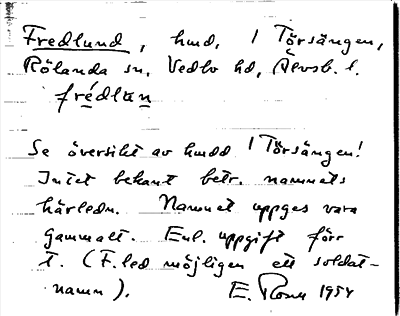 Fredlund, hmd, / Törsängen,
Rölanda sn, Vedbo hd, Älvsb. l.
frédlun
Se översikt av hmdd / Törsängen!
Intet bekant betr. namnets
härledn. Namnet uppges vara
gammalt. Enl. uppgift förr
t. (F.led möjligen ett soldat-
namn). E. Ronn 1954